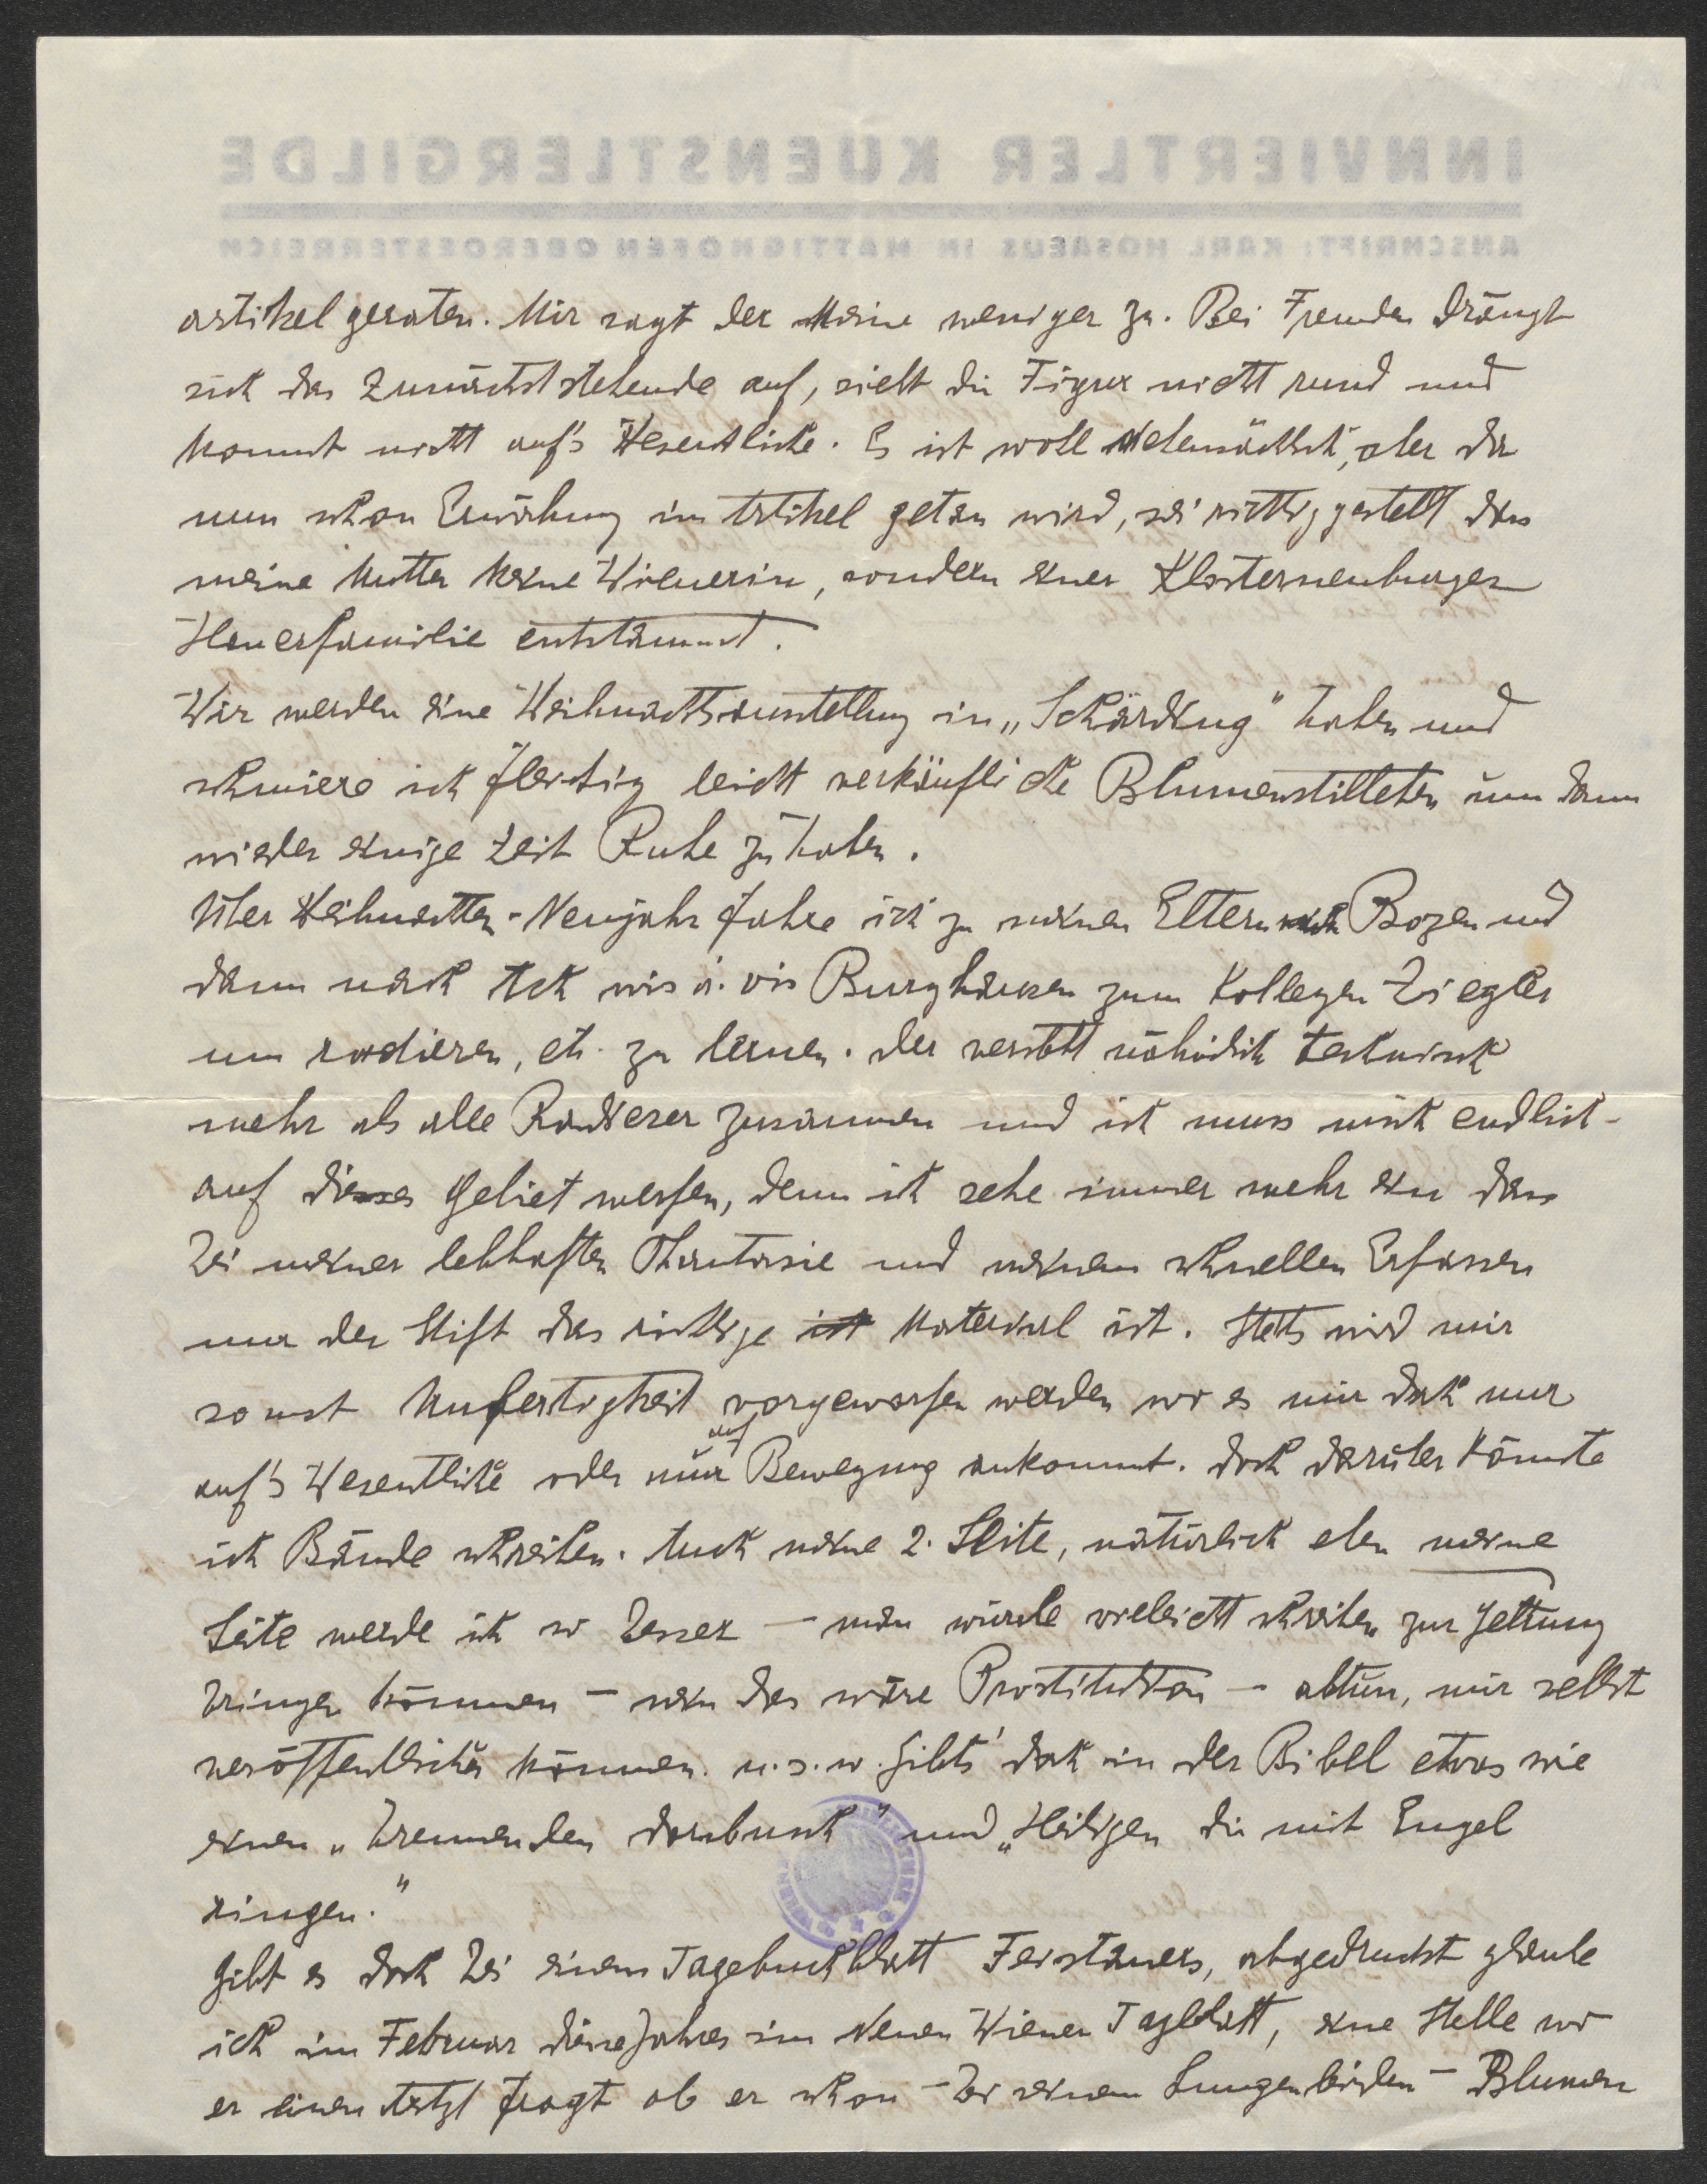 INNVIERTLER KUENSTLERGILDE
ANSCHRIFT: KARL HOSAEUS IN MATTIGHOFEN OBEROESTERREICH
artikel geraten. Mir sagt der Meine weniger zu. Bei Fremden drängt
sich das Zunächststehende auf, sieht die Figur nicht rund und
kommt nicht auf's Wesentliche. Es ist wohl nebensächlich, aber da
nun schon Erwähnung im Artikel getan wird, sei richtig gestellt dass
meine Mutter keine Wienerin, sondern einer Klosterneuburger
Hauerfamilie entstammt.
Wir werden eine Weihnachtsausstellung in „Schärding" haben und
schmiere ich fleissig leicht verkäufliche Blumenstilleben um dann
wieder einige Zeit Ruhe zu haben.
Über Weihnachten-Neujahr fahre ich zu meinen Eltern nach Bozen und
dann nach Ach vis à vis Burghausen zum Kollegen Ziegler
um radieren, etc. zu lernen. Der versteht nämlich technisch
mehr als alle Radierer zusammen und ich muss mich endlich
auf dieses Gebiet werfen, denn ich sehe immer mehr ein dass
bei meiner lebhaften Phantasie und meinem schnellen Erfassen
nur der Stift das richtige ist Material ist. Stets wird mir
sonst Unfertigkeit vorgeworfen werden wo es mir doch nur
auf's Wesentliche oder nur auf Bewegung ankommt. Doch darüber könnte
ich Bände schreiben. Auch meine 2. Seite, natürlich eben meine
Seite werde ich so besser — man würde vieleicht schreiben zur Geltung
bringen können — nein das wäre Prostitution — abtun, mir selbst
veröffentlichen können. u.s.w. Gibts' doch in der Bibel etwas wie
einen „brennenden Dornbusch" und „Heiligen die mit Engel
ringen."
Gibt es doch bei einem Tagebuchblatt Feistauers, abgedruckt glaube
ich im Februar diese Jahres im Neuen Wiener Tagblatt, eine Stelle wo
er einen Arzt fragt ob er schon – bei seinem Lungenleiden – Blumen